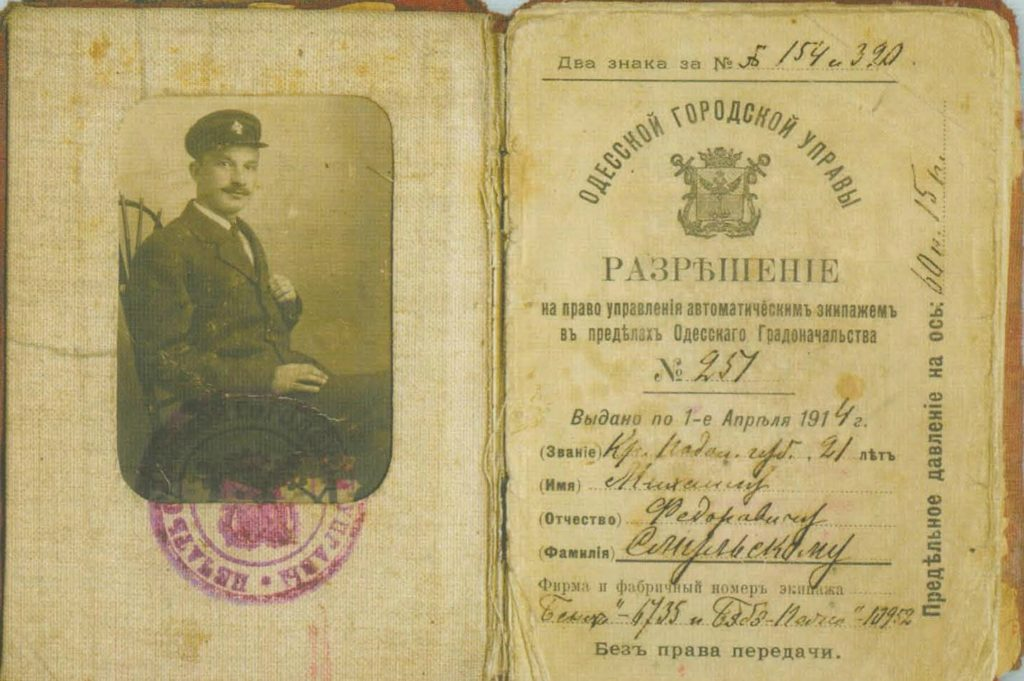 Два знака за № Б 154 и 320
ОДЕССКОЙ ГОРОДСКОЙ УПРАВЫ
РАЗРѢШЕНІЕ
на право управленія автоматическимъ экипажемъ
въ предѣлахъ Одесскаго Градоначальства
№ 251
Выдано по 1-е Апрѣля 1914 г.
(Званіе) Кр. Подол. губ. , 21 лѣтъ
(Имя) Михаилу
(Отчество) Федоровичу
(Фамилія) Смульскому
Фирма и фабричный номеръ экипажа
"Бенцъ" - 6735 и "Бэбэ-Пежо" - 10952
Безъ права передачи.
Предѣльное давленіе на ось: 60 п. 15
ПЕЧАТЬ УПРАВЫ